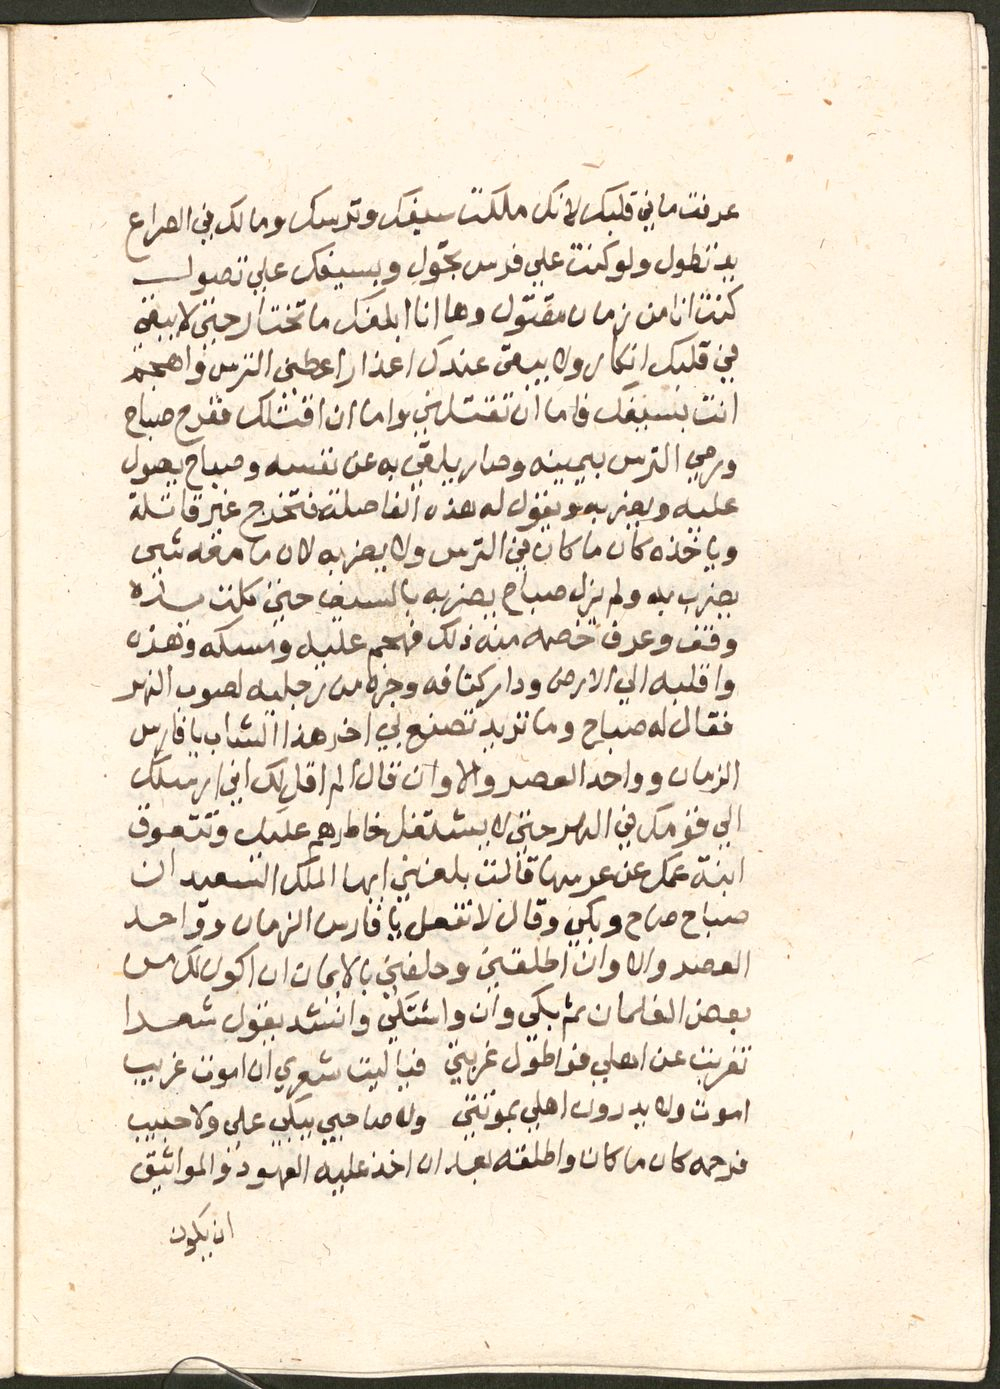 عرفت ما في قلبك لانك ملكت سيفك وترسك ومالك في الصراع
يد تطول ولو كنت علي فرس تجول وبسيفك علي تصول
كنت انا من زمان مقتول وها انا ابلغك ما تختار حتي لا يبقي
في قلبك انكار ولا يبقي عندك اعذار اعطني الترس واهجم
انت بسيفك فاما ان تقتلني واما ان اقتلك ففرح صباح
ورمي الترس بيمينه وصار يلقي به عن نفسه وصباح يصول
عليه ويضربه ويقول له هذه الفاصلة فتخرج غير قاتلة
وياخذه كان ما كان في الترس ولا يضربه لان ما معه شي
يضرب به ولم يزل صباح يضربه بالسيف حتي كلت يده
وقف وعرف خصمه منه ذلك فهجم عليه ومسكه وهزه
واقلبه الي الارض ودار كتافه وجره من رجليه لصوب النهر
فقال له صباح وما تريد تصنع بي اخر هذا الشاب يا فارس
الزمان وواحد العصر والاوان قال الم اقل لك اني ارسلك
الي قومك في النهر حتي لا يشتغل خاطرهم عليك وتتعوق
ابنة عمك عن عرسها قالت بلغني ايها الملك السعيد ان
صباح صاح وبكي وقال لا تفعل يا فارس الزمان وواحد
العصر والاوان اطلقني وحلفني بالايمان ان اكون لك من
بعض الغلمان ثم بكي وان واشتكي وانشد يقول شعرا
تغربت عن اهلي فواطول غربتي فيا ليت شعري ان اموت غريب
اموت ولا يدرون اهلي بموتتي ولا صاحبي يبكي علي ولا حبيب
فرحمه كان ما كان واطلقه بعد ان اخذ عليه العهود والمواثيق
ان يكون